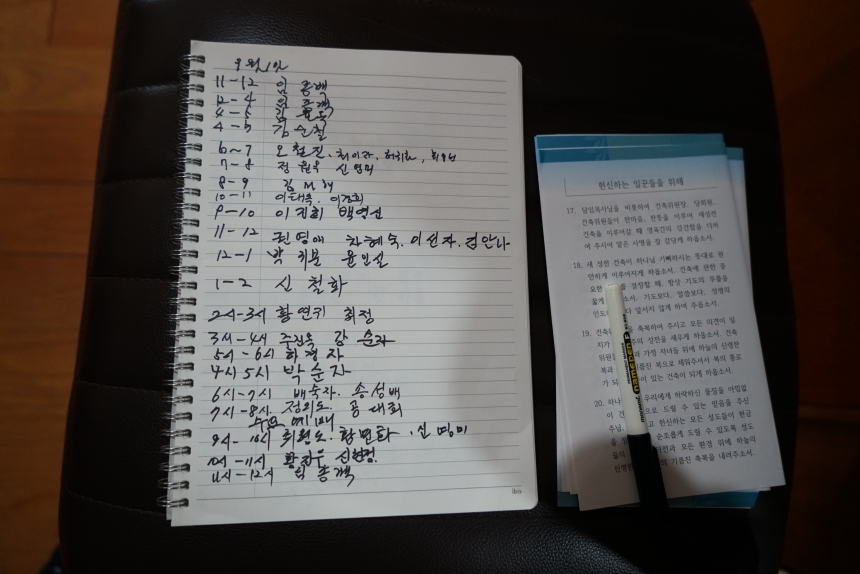 9월1일
11-12 임종백
12-4 임종백
4-5
4-5 김순철
6~7 오철진. 최이자.
7-8 정원옥 신영미
8-9 김
10-11 이태훈. 이건희
9-10 이진희 백영신
11-12 권영애 차혜숙. 이선자. 김안나
12-1 윤인실
1-2 신철화
2시-3시 황연키 최정
3시-4시 주진옥 강순자
5시-6시 하경자
4시5시 박순자
6시-7시 배숙자. 송성배
7시-8시. 정외도. 공대희
수요예배
9시-10시 최원도. 황면화. 신명미
10시-11시
11시-12시 임종백
ibis
헌신하는 일꾼들을 위해
17. 담임목사님을 비롯하여 건축위원장, 당회원,
건축위원들이 한마음, 한뜻을 이루어 새성전
건축을 이루어갈 때 영육간의 강건함을 더하
여 주시어 맡은 사명을 잘 감당케 하옵소서.
18. 새 성전 건축이 하나님 기뻐하시는 뜻대로 평
안하게 이루어지게 하옵소서. 건축에 관한 중
요한 결정할 때, 항상 기도의 무릎을
꿇게 소서. 기도보다, 말씀보다, 성령의
인도 다 앞서지 않게 하여 주옵소서.
19. 건축 을 축복하여 주시고 모든 의견이 일
치가 주의 성전을 세우게 하옵소서. 건축
위원 과 가정 자녀들 위에 하늘의 신령한
복과 기름진 복으로 채워주셔서 복의 통로
가 되 이 있는 건축이 되게 하옵소서.
20. 하나 우리에게 허락하신 물질을 아낌없
이 건 으로 드릴 수 있는 믿음을 주신
주님. 고 헌신하는 모든 성도들이 헌금
을 순조롭게 드릴 수 있도록 성도
들의 터전과 모든 환경 위에 하늘의
신령한 의 기름진 축복을 내려주소서.
namepen F